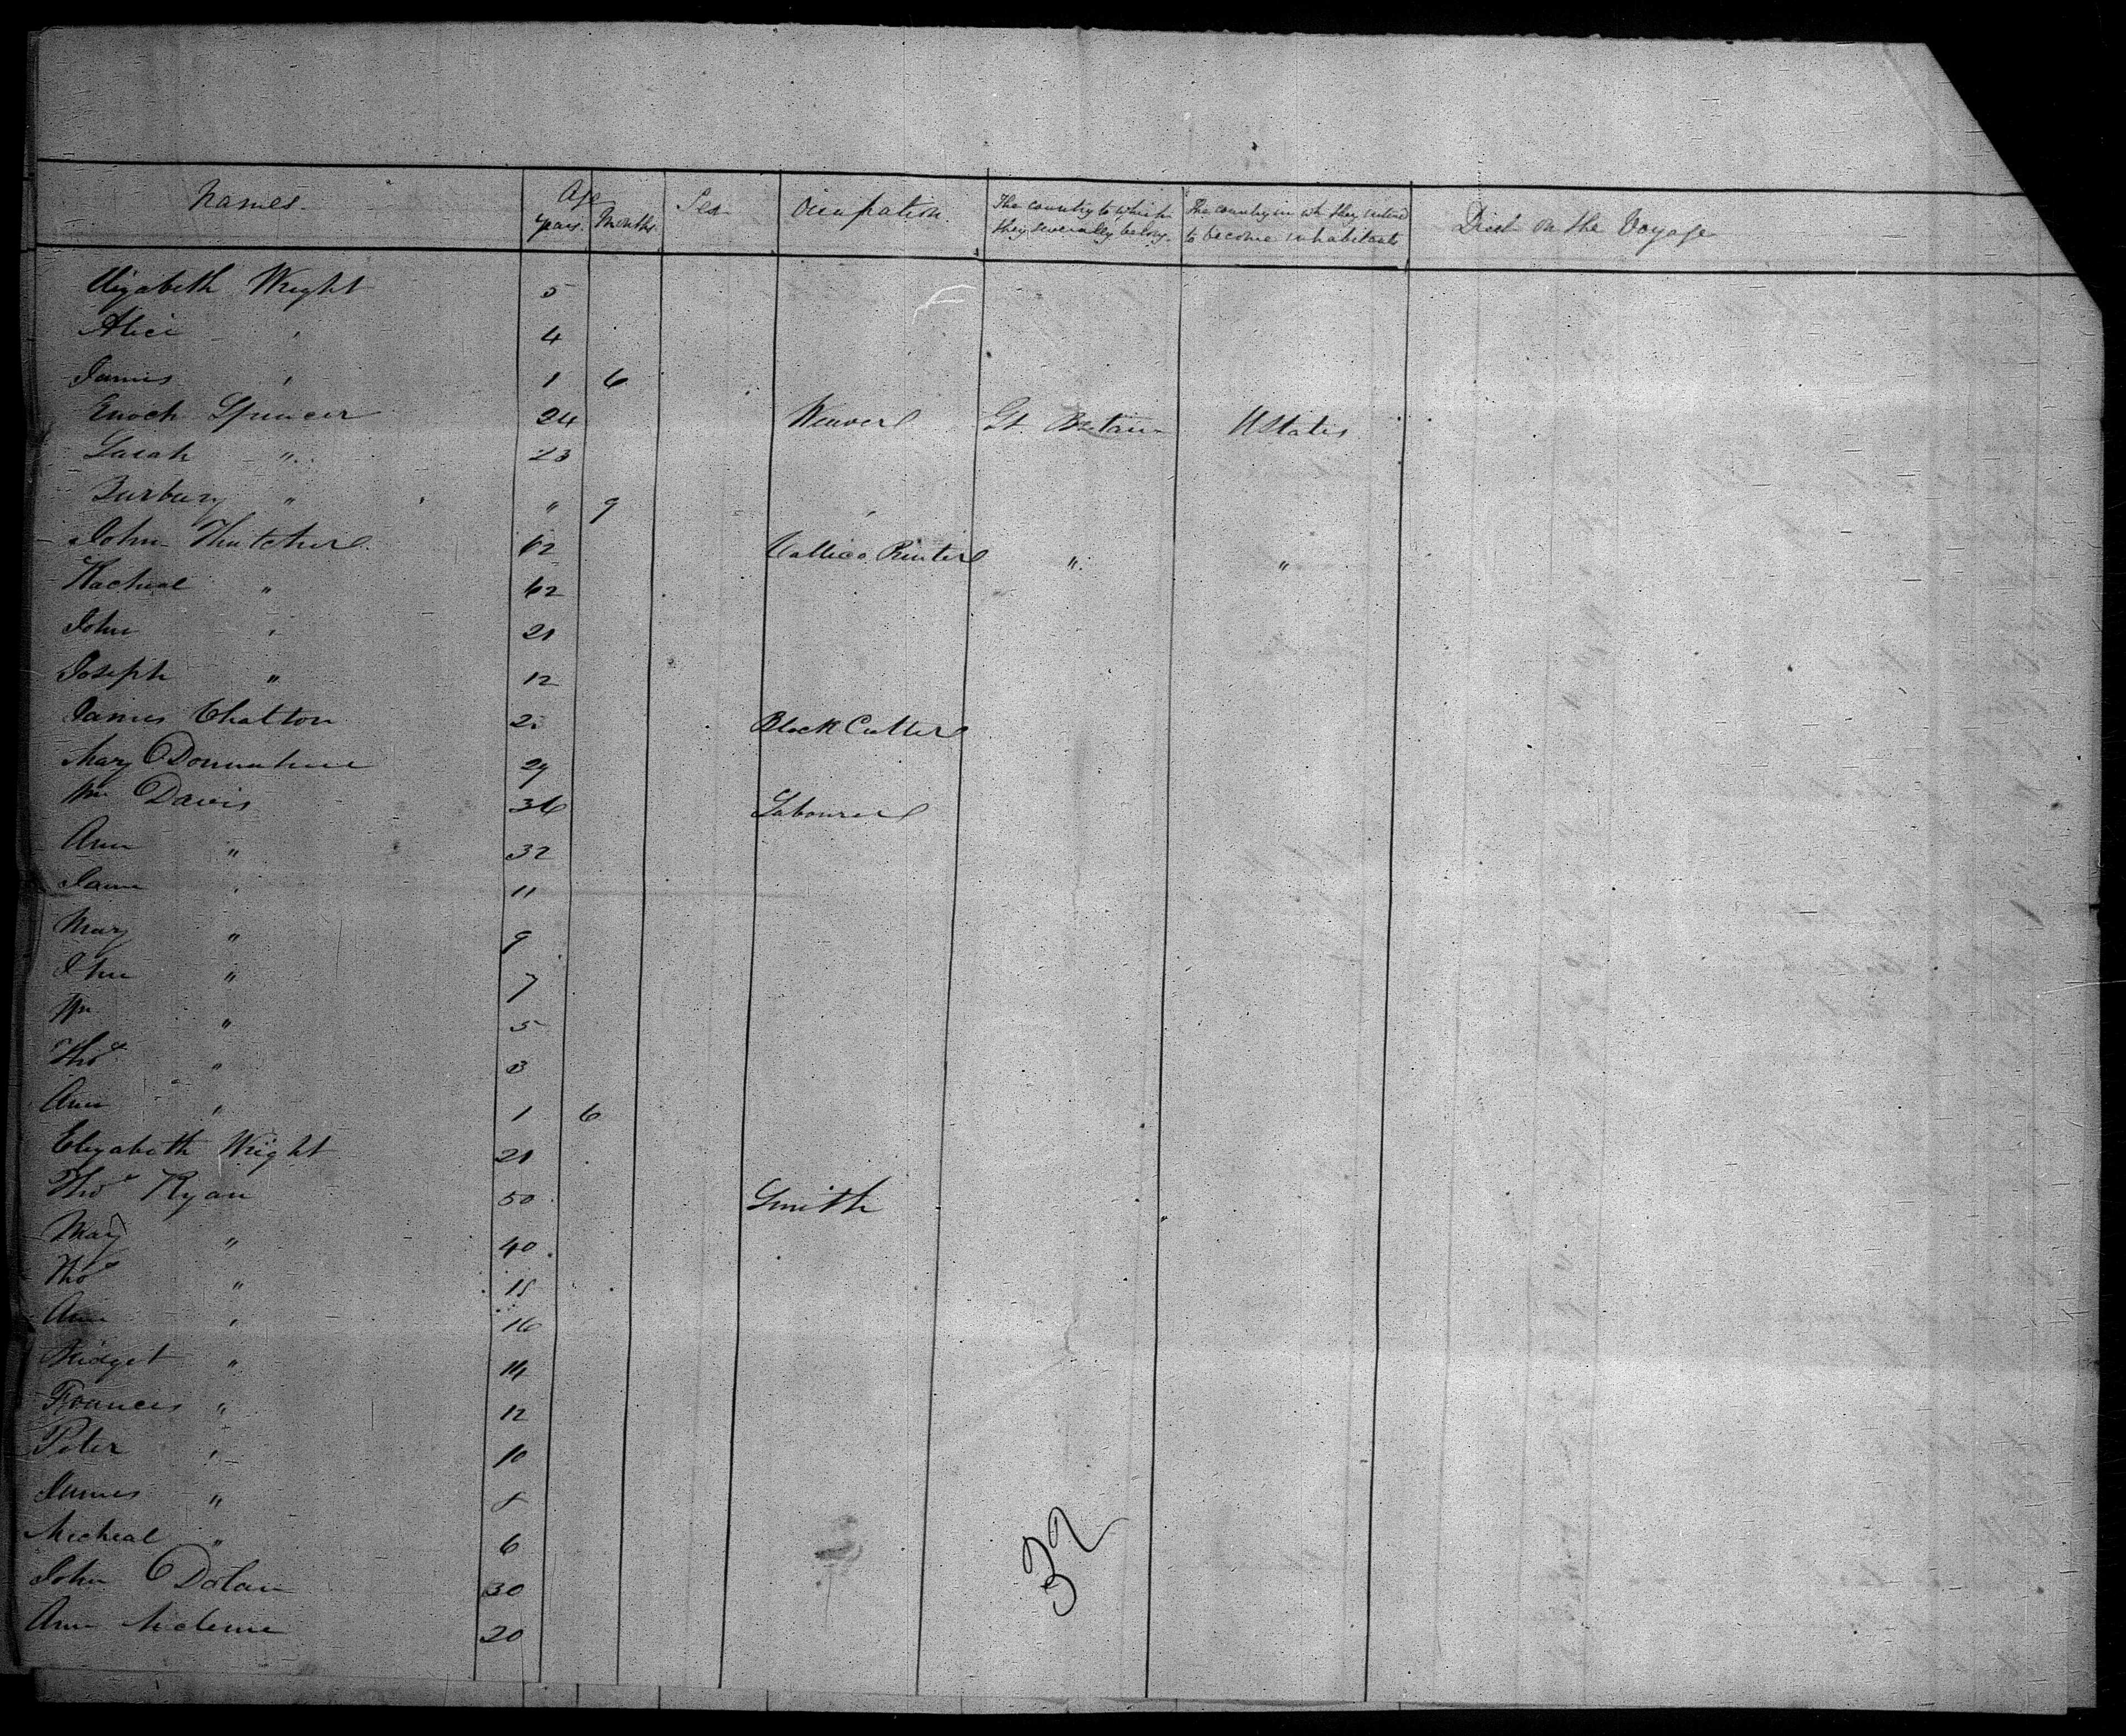 Names. Age Sex Occupation. The country to which The country in wh they intend Died on the Voyage
years. Months. they severally belong. to become inhabitants
Elizabeth Wright 5
Alice " 4
James " 1 6
Enoch Spencer 24 Weaver Gt. Britain U States
Sarah " 23
" " 9
John Thatcher 62 Callico Printer " "
Racheal " 62
John " 21
Joseph " 12
James Chatton Block Cutter
Mary 29
Wm Davis 36 Labourer
Ann " 32
Jane " 11
Mary " 9
John " 7
Wm " 5
Thos " 3
Ann " 1 6
Elizabeth Wright 21
Thos Ryan 50 Smith "
Mary " 40
Thos " 18
Ann " 16
Bridget " 14
Frances " 12
Peter " 10
James " 8
Micheal " 6
John Dolan 30
Ann 20
32